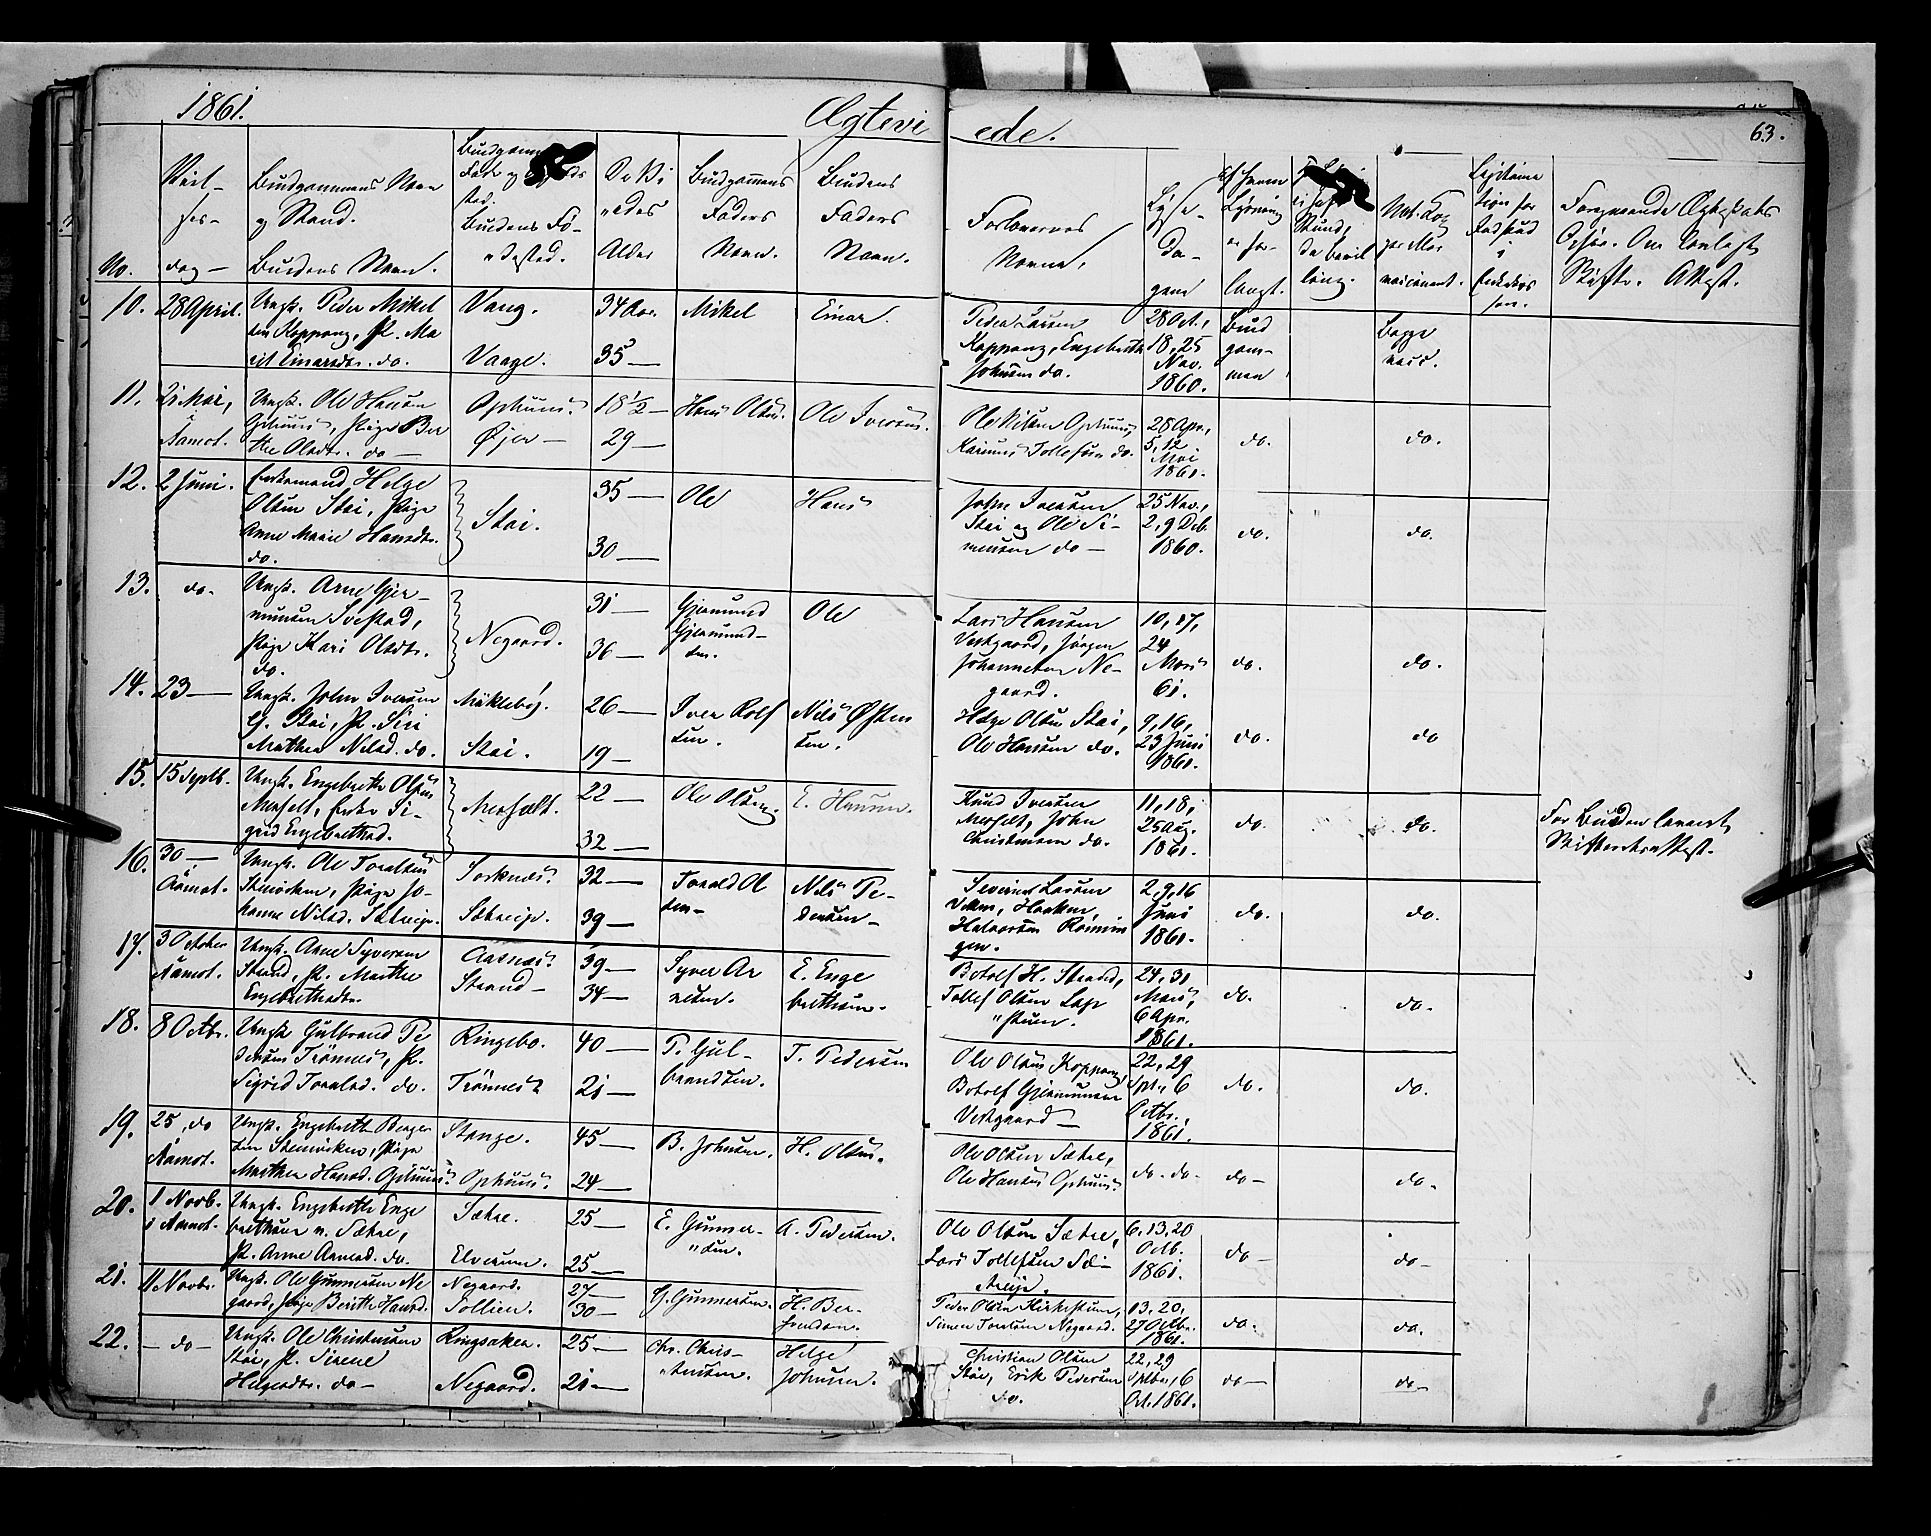 1861.
Ægtevi
ede.
63.
No.
Viel-
ses-
dag-
Brudgommens Navn
og Stand.
Brudens Navn.
Brudens Fø-
dested.
De Vi
edes
Alder
Brudgommens
Faders
Navn.
Brudens
Faders
Navn.
Forlovernes
Navne.
Lyse-
Da-
gene
10. 28 April.
Ungk. Peder Mikel
sen Koppang, P. Ma
rit Einarsdtr. do.
Vang.
Vaage.
34 Aar.
35 —
Mikel
Einar.
Peder Larsen
Koppang, Engebreth
Johnsen do.
28 Oct.,
18, 25
Nov.
1860.
Brud
gom-
men
Begge
vacc.
11. 2 Mai,
Aamot.
Ungk. Ole Hansen
Ophuus, Pige Ber
the Olsdtr. do —
Ophuus.
Øjer —
18 1/2 —
29 —
Hans Olsen.
Ole Iversen.
Ole Nilsen Ophuus,
Tollefsen do.
28 Apr.,
5, 12
Mai
1861.
do.
do.
12. 2 Juni.
Enkemand Helge
Olsen Stai, Pige
Anne Marie Hansdtr.
do.
Stai.
35 —
30 —
Ole
Hans
John Iversen
Stai og Ole Si-
mensen do —
25 Nov.,
2, 9 Deb.
1860.
do.
do.
13. do.
Ungk. Arne Gjer-
mundsen Svestad,
Pige Kari Olsdtr.
do.
Negaard.
31 —
36 —
Gjermund
Gjermund-
sen.
Ole
Lars Hansen
Vestgaard, Jørgen
Johannesen Ne-
gaard.
10, 17,
24
Marts
61.
do.
do.
14. 23 —
Ungk. John Iversen
Stai, P. Siri
Mathea Nilsd. do.
Mykleby.
Stai.
26 —
19 —
Iver Rolf
sen.
Nils Østen
sen.
Helge Olsen Stai,
Ole Hansen do.
9, 16,
23 Juni
1861.
do.
do
15. 15 Septb.
Ungk. Engebreth Olsen
Messelt, Enke Si-
grid Engebrethsd.
Messelt.
22 —
32 —
Ole Olsen.
E. Hansen.
Knud Iversen
Messelt, John
Christensen do.
11, 18,
25 Aug.
1861.
do.
do.
For Bruden leveret
Skifteretsattest.
16. 30 —
Aamot.
Ungk. Ole Toraldsen
Stenviken, Pige Jo-
hanne Nilsd.
Sorknæs.
32 —
39 —
Torald O
sen —
Nils Pe-
dersen —
Severin Larsen
Haaken
Halvorsen
gen.
2, 9, 16
Juni
1861.
do.
do.
17. 3 October
Aamot.
Ungk. Arne Syversen
Strand, P. Marthe
Engebrethsdtr.
Aasnæs.
Strand —
39 —
34 —
Syver Ar
nesen.
E. Enge
brethsen.
Botolf H. Strand,
Tollef Olsen
24, 31
Marts,
6 Apr.
1861.
do.
do.
18. 8 Octbr.
Ungk. Gulbrand Pe
dersen Trønnes, P.
Sigrid Toralsd. do.
Ringebo.
Trønnes
40 —
21 —
P. Gul-
brandsen.
T. Pedersen
Ole Olsen Koppang
Botolf Gjermundsen
Vestgaard —
22, 29
Sptr, 6
Octbr.
1861.
do.
do.
19. 25, do
Aamot.
Ungk. Engebreth Berger
sen Stenviken, Pige
Marthea Hansd. Ophuus.
Stange.
Ophuus.
45 —
24 —
B. Johnsen.
H. Olsen.
Ole Olsen Sætre,
Ole Hansen Ophuus.
do. do.
do —
do.
20. 1 Novb.
i Aamot.
Ungk. Engebreth Enge
brethsen n. Sætre,
P. Anne Arnesd. do.
Sætre.
Elverum.
25 —
25 —
E. Gunner-
sen.
A. Pedersen.
Ole Olsen Sætre,
Lars Tollefsen
6, 13, 20
Octb.
1861.
do —
do —
21. 11 Novbr.
Ungk. Ole Gunnersen Ne
gaard, Pige Berthe Hansd.
Negaard.
Sollien.
27 —
30 —
G. Gunnersen.
H. Ber-
Peder Olsen Kirkestuen,
Simen Negaard.
13, 20,
27 Octbr.
1861.
do.
do.
22. — do —
Ungk. Ole Christensen
Stai, P. Sirene
Helgesdtr. do —
Ringsaker.
Negaard.
25 —
21 —
Chr. Chris-
tensen.
Helge
Johnsen.
Christian Olsen
Stai, Erik Pedersen
do.
22, 29
Sptbr, 6
Oct. 1861.
do —
do —